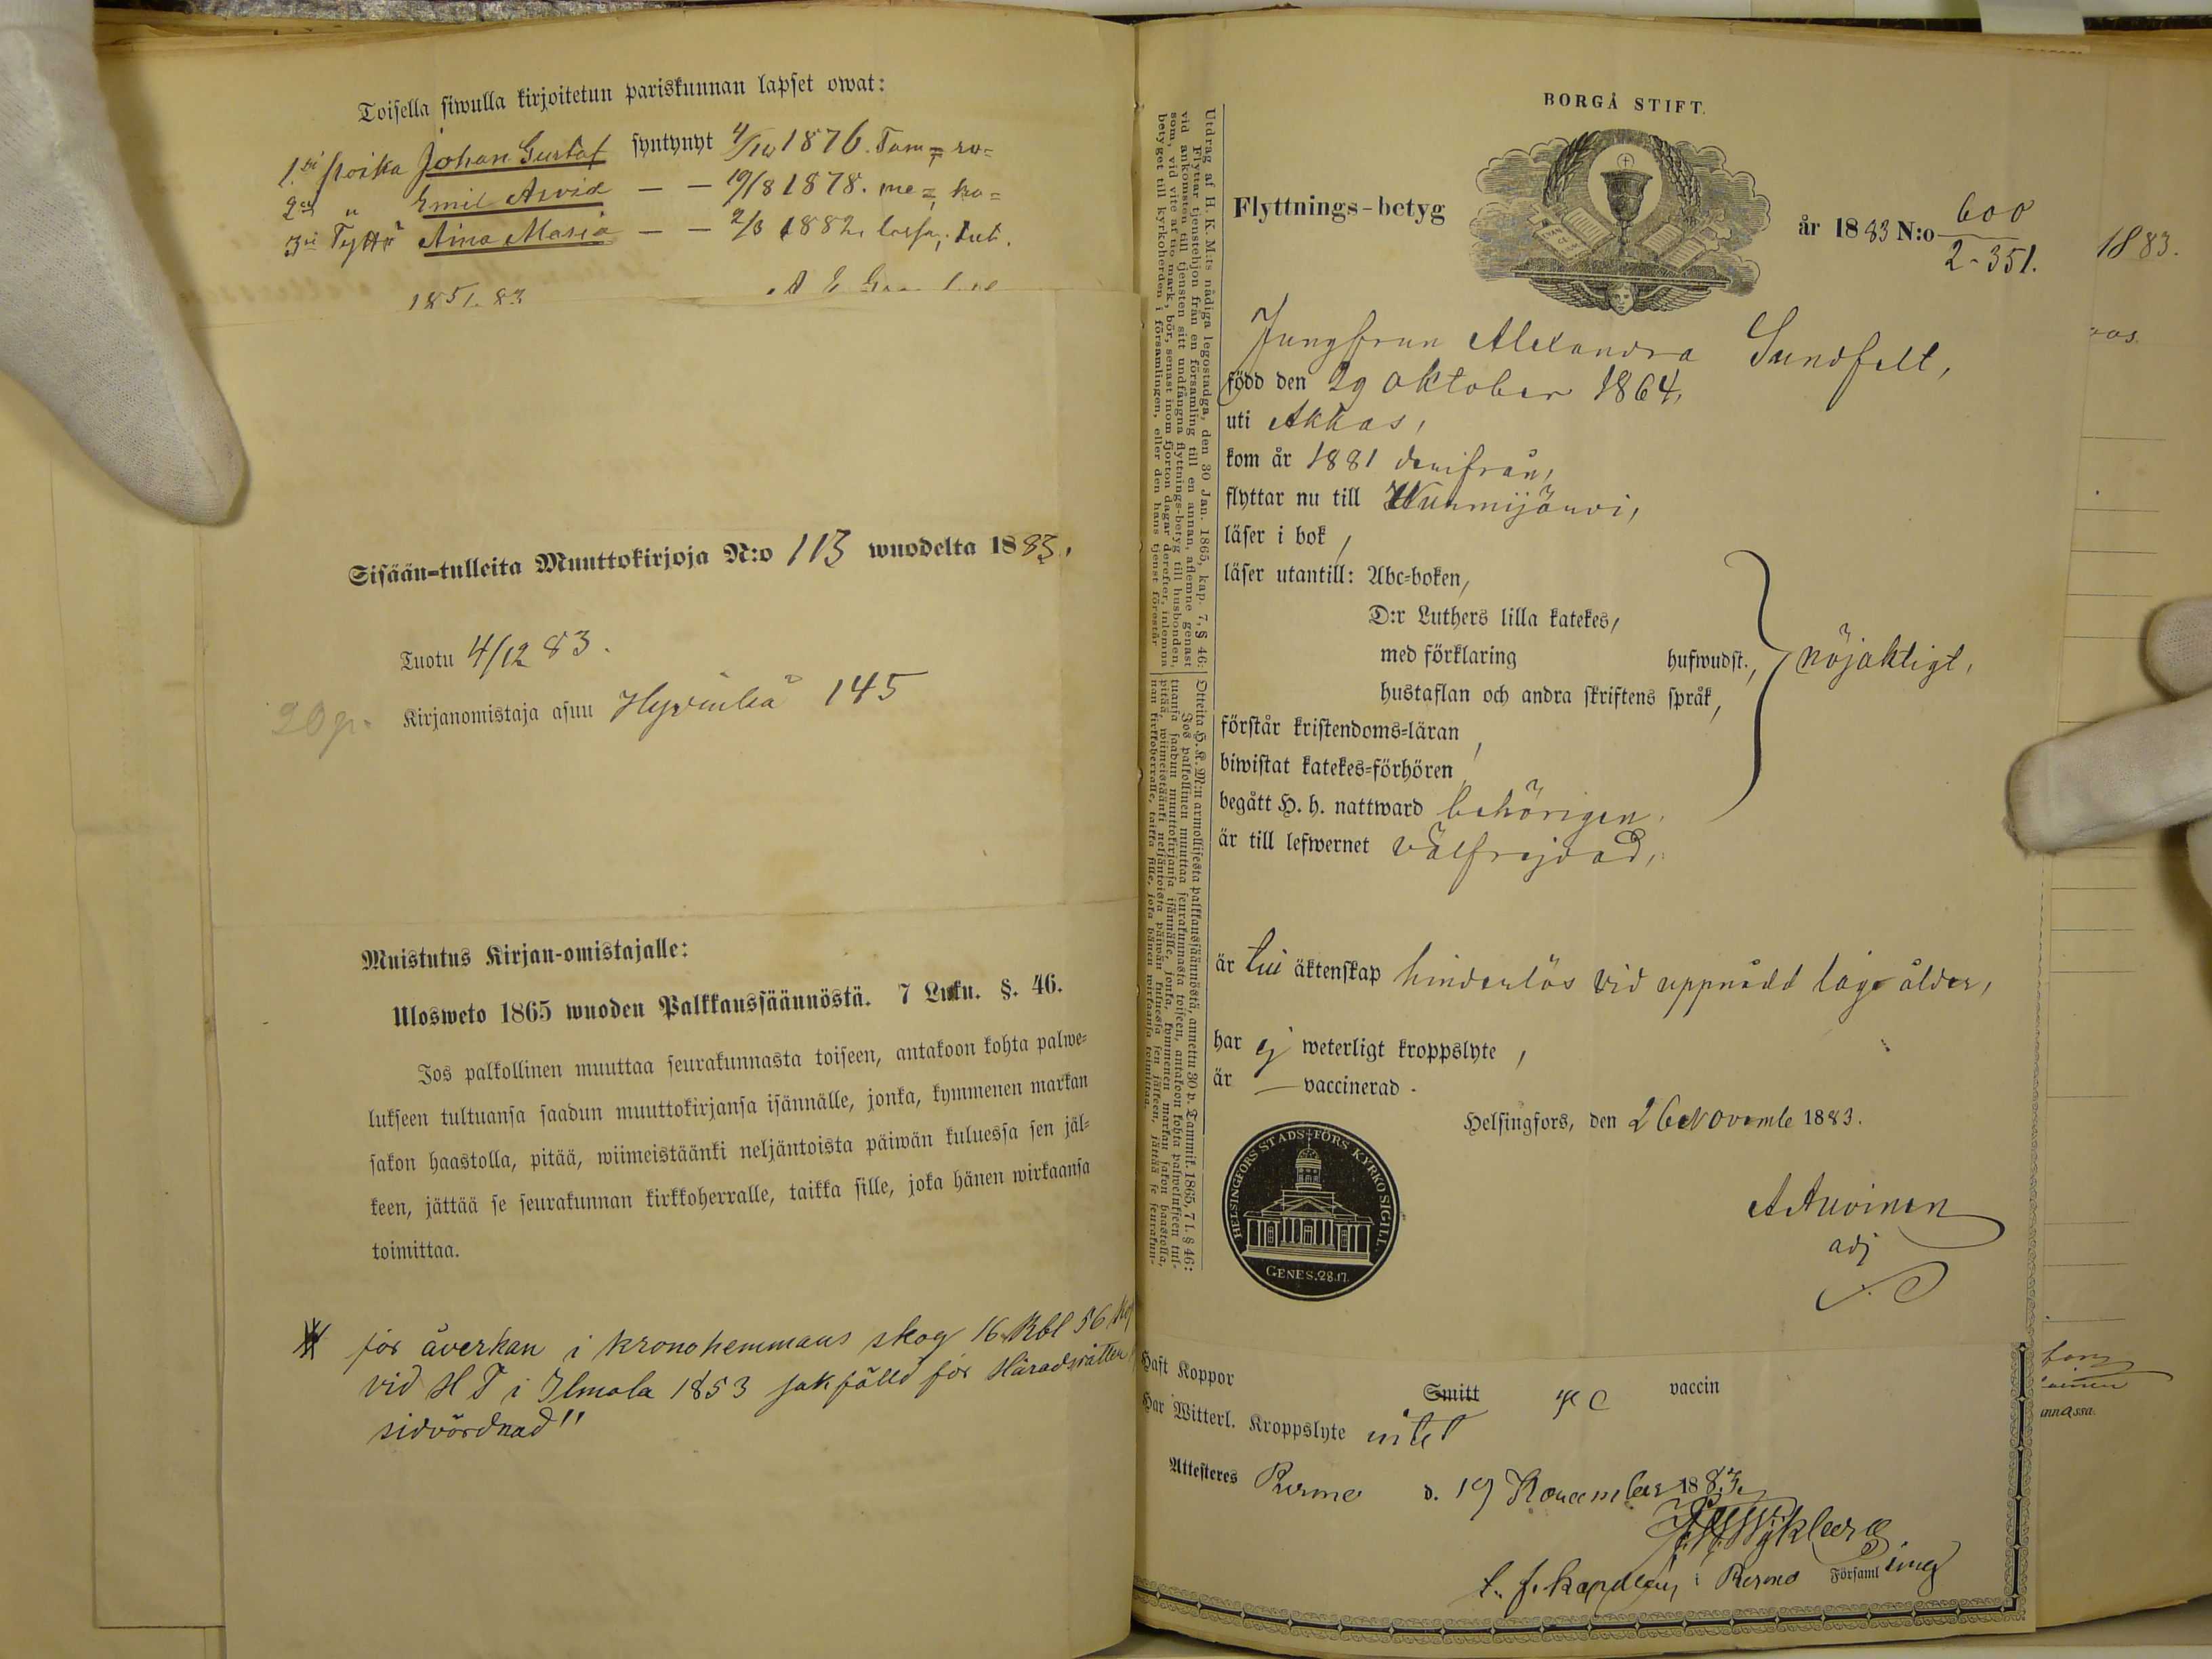 Toisella siwulla kirjoitetun pariskunnan lapset owat:
1.si poika Johan Gustaf syntynyt 4/10 1876. Tam= ro=
2en " Emil Arvid — — 19/8 1878. me= ko=
3si Tyttö Aina Maria — — 2/3 1882.
18 5/1. 83
Sisään=tulleita Muuttokirjoja N:o 113 wuodelta 1883.
Tuotu 4/12 83.
20 p. Kirjanomistaja asuu Hyvinkä 145
Muistutus Kirjan-omistajalle:
Ulosweto 1865 wuoden Palkkaussäännöstä. 7 Luku. §. 46.
Jos palkollinen muuttaa seurakunnasta toiseen, antakoon kohta palwe=
lukseen tultuansa saadun muuttokirjansa isännälle, jonka, kymmenen markan
sakon haastolla, pitää, wiimeistäänki neljäntoista päiwän kuluessa sen jäl=
keen, jättää se seurakunnan kirkkoherralle, taikka sille, joka hänen wirkaansa
toimittaa.
för åverkan i kronohemmans skog 16 Rbl 56
vid H T i Ilmola 1853 sakfälld för Häradsrätten
sidvördnad"
Utdrag af H. K. M:ts nådiga legostadga, den 30 Jan. 1865, kap. 7, § 46:
Flyttar tjenstehjon från en församling till en annan, aflemne genast
vid ankomsten till tjensten sitt undfångna flyttnings-betyg till husbonden,
som, vid vite af tio mark, bör, senast inom fjorton dagar derefter, inlemna
betyget till kyrkoherden i församlingen, eller den hans tjenst förestår
Otteita H. K. M:n armollisesta palkkaussäännöstä, annettu 30 p. Tammik. 1865, 7 l. § 46:
Jos palkollinen muuttaa seurakunnasta toiseen, antakoon kohta palwelukseen tul-
tuansa saadun muuttokirjansa isännälle, jonka, kymmenen markan sakon haastolla,
pitää, wiimeistäänki neljäntoista päiwän kuluessa sen jälkeen, jättää se seurakun-
nan kirkkoherralle, taikka sille, joka hänen wirkaansa toimittaa.
BORGÅ STIFT.
Flyttnings-betyg år 1883 N:o 600
2-351.
Jungfrun Alexandra Sundfelt,
född den 29 oktober 1864,
uti Akkas,
kom år 1881 derifrån,
flyttar nu till Nurmijärvi,
läser i bok,
läser utantill: Abc=boken,
D:r Luthers lilla katekes,
med förklaring hufwudst., nöjaktigt,
hustaflan och andra skriftens språk,
förstår kristendoms=läran,
biwistat katekes=förhören,
begått H. h. nattward behörigen.
är till lefwernet välfrejdad,
är till äktenskap hinderlös vid uppnådd laga ålder,
har ej weterligt kroppslyte,
är — vaccinerad.
Helsingfors, den 26 Novembe 1883.
HELSINGFORS STADS FÖRS KYRKO SIGILL.
GENES. 28. 17.
A Auvinen
adj
Haft Koppor Smitt vaccin
Har Witterl. Kroppslyte intet
Attesteres Rermo d. 19 November 1883.
t. f. kaplan i Rermo Församl ing
1883.